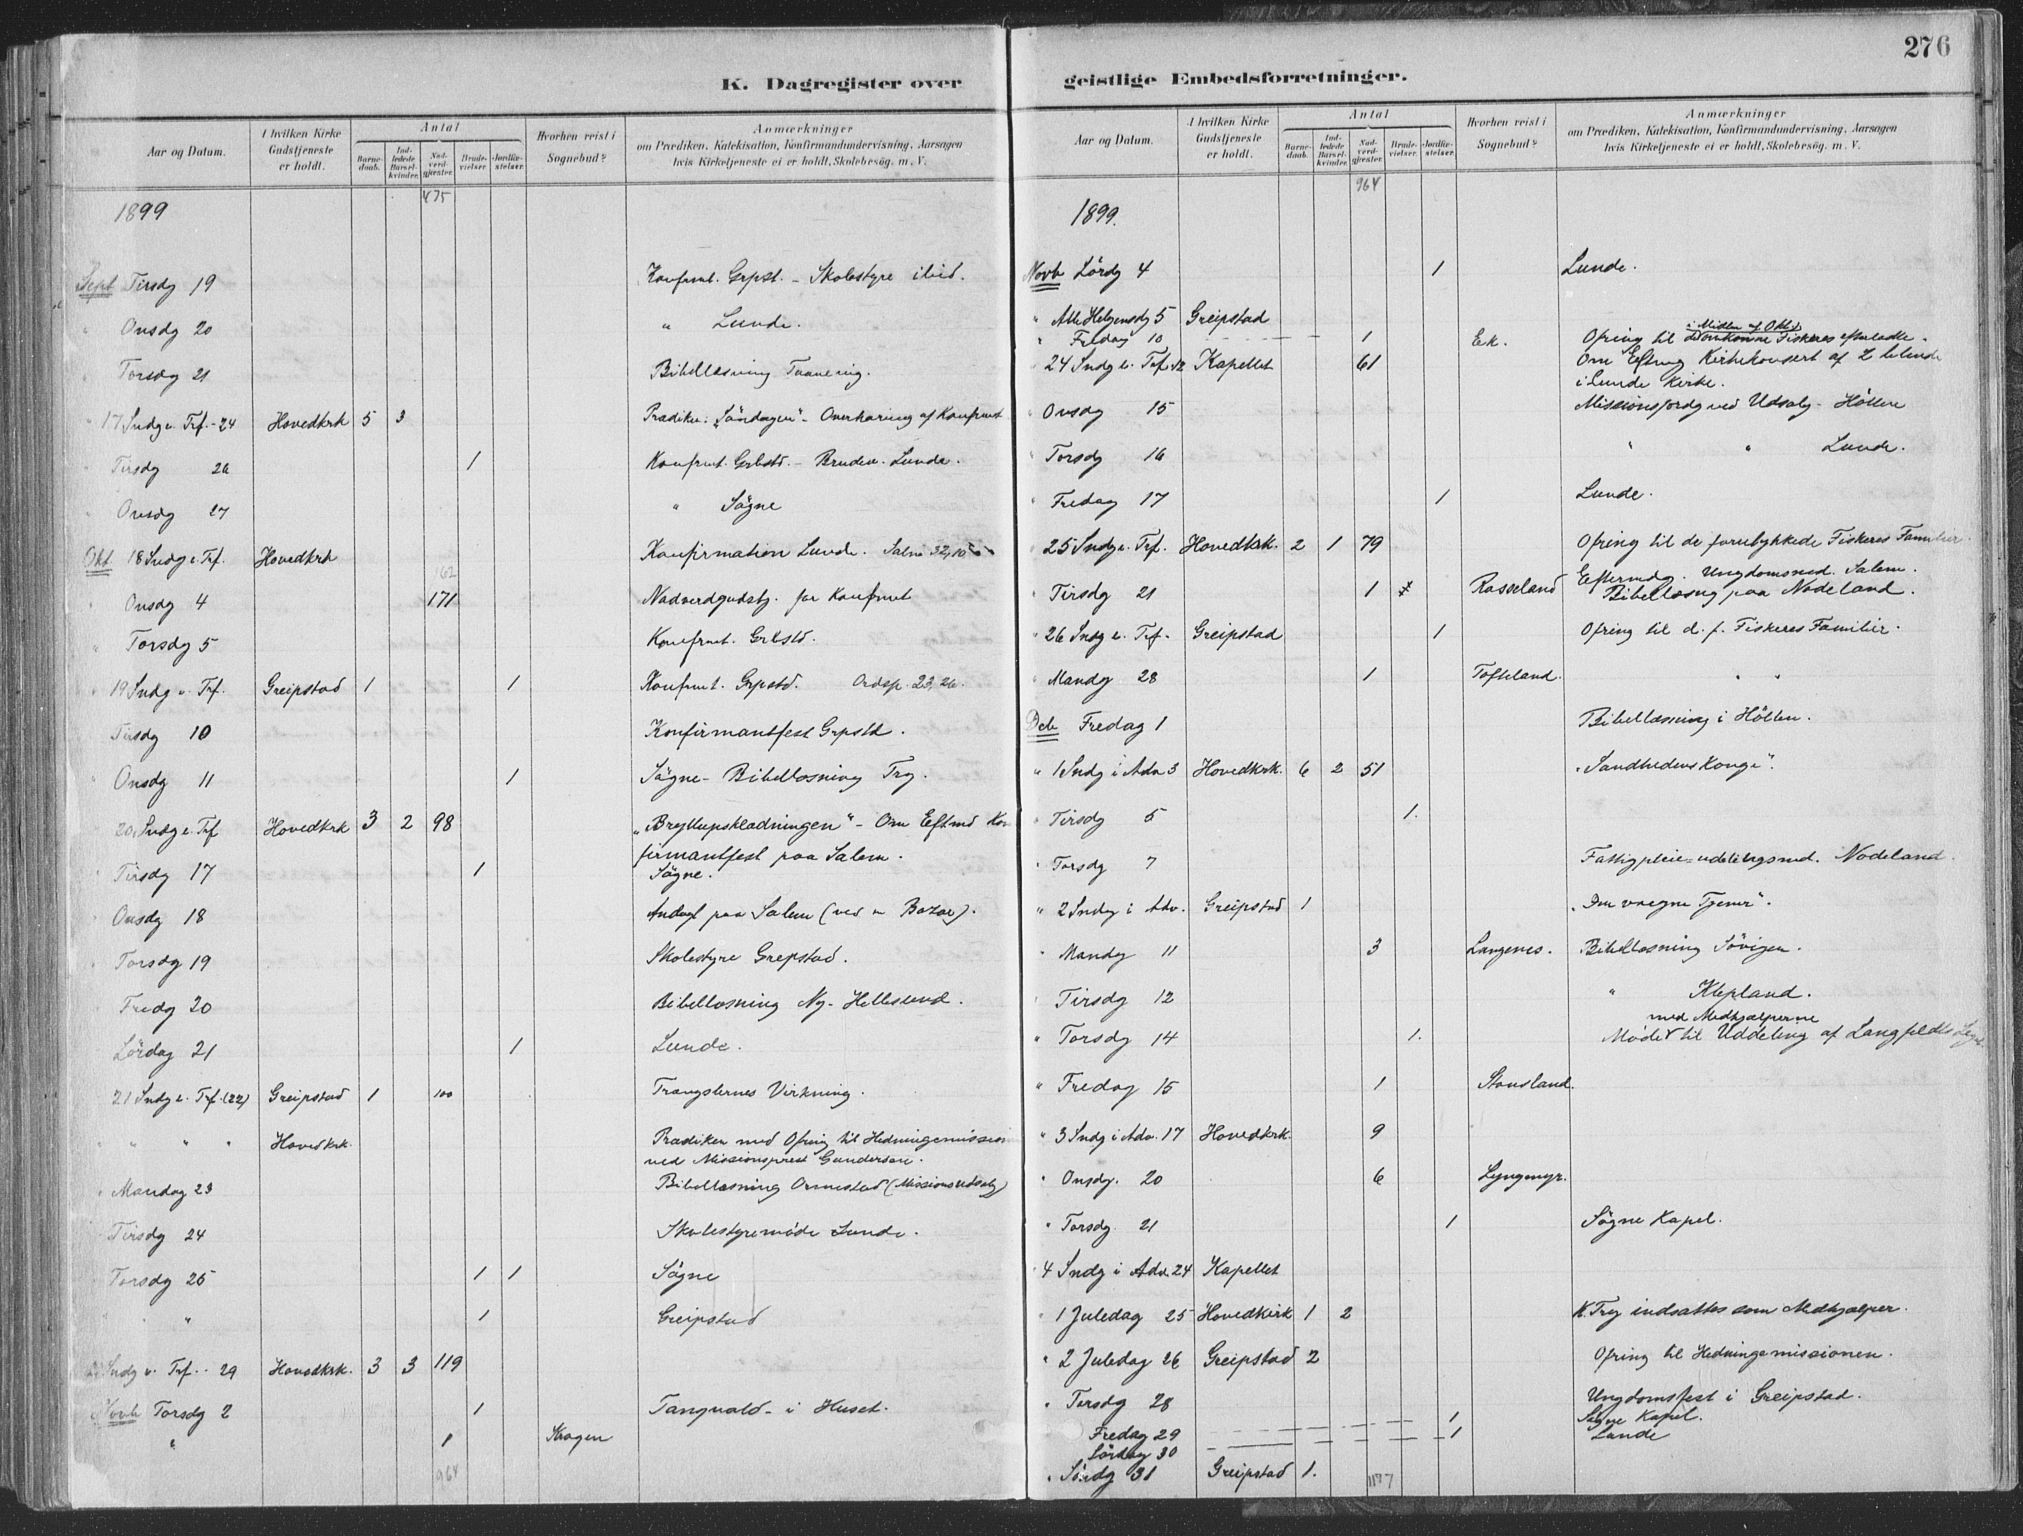 276
K. Dagregister over geistlige Embedsforretninger.
Aar og Datum.
I hvilken Kirke Gudstjeneste er holdt.
Antal
Barne-daab.
Ind-ledede Barsel-kvinder.
Nad-verd-gjester.
Brude-vielser.
Jordfæ-stelser.
Hvorhen reist i Sognebud?
Anmærkninger
om Prædiken, Katekisation, Konfirmandundervisning, Aarsagen
hvis Kirketjeneste ei er holdt, Skolebesög. m. V.
475
1899
Sept Tirsdg 19 Konfrmt. Grpst. - Skolestyre ibid.
" Onsdg 20 " Lunde.
" Torsdg 21 Bibellæsning
" 17 Sndg e. Trf. - 24 Hovedkrk 5 3 Prædiken: "Søndagen" - Overhøring af Konfrmt
" Tirsdg 26 1 Konfrmt. Grbstd. - Brudev. Lunde.
" Onsdg 27 " Sögne
Okt 18 Sndg e. Trf. Hovedkrk Konfirmation Lunde. Salme 32,10
162
" Onsdg 4 171 Nadverdgudstj. for Konfrmt
" Torsdg 5 Konfrmt. Grbstd.
" 19 Sndg e. Trf. Greipstad 1 1 Konfrmt. Grpstd. Ordsp. 23,26.
Tirsdg 10 Konfirmantfest Grpstd.
" Onsdg 11 1 Sögne - Bibellæsning Try.
20 Sndg e. Trf Hovedkrk 3 2 98 "Bryllupsklædningen" - Om Eftmd Kon
firmantfest paa Salem.
" Tirsdg 17 1 Sögne.
Onsdg 18 Andagt paa Salem (ved en Bazar).
" Torsdg 19 Skolestyre Grepstad.
" Fredg 20 Bibellæsning Ny-Hellesund.
" Lördag 21 1 Lunde.
21 Sndg e. Trf. (22) Greipstad 1 100 Trængslernes Virkning.
" " " " Hovedkrk. Prædiken med Ofring til Hedningemission
ved Missionsprest Gundersen.
" Mandag 23 Bibellæsning Ormestad (Missionsudsalg)
Tirsdg 24 Skolestyremöde Lunde.
" Torsdg 26 1 1 Sögne
" 1 Greipstad
22 Sndg e. Trf. - 29 Hovedkrk. 3 3 119
Novb Torsdg 2 1 Tangvald - i Huset.
" 1 Skogen
964
Aar og Datum.
I hvilken Kirke Gudstjeneste er holdt.
Antal
Barne-daab.
Ind-ledede Barsel-kvinder.
Nad-verd-gjester.
Brude-vielser.
Jordfæ-stelser.
Hvorhen reist i Sognebud?
Anmærkninger
om Prædiken, Katekisation, Konfirmandundervisning, Aarsagen
hvis Kirketjeneste ei er holdt, Skolebesög. m. V.
964
1899.
Novb Lördg 4 1 Lunde.
" Alle Helgensdg 5 Greipstad
i Midten af Oktb
" Fredag 10 1 Eek. Ofring til omkomne Fiskeres efterladte.
24 Sndg e. Trf. 12 Kapellet 61 Om Eftmg Kirkekonsert af 2 blinde
i Lunde Kirke.
" Onsdg 15 Missionsforedg ved Udsalg - Hölten
" Torsdg 16 " " Lunde.
" Fredag 17 1 Lunde.
25 Sndg e. Trf. Hovedkrk. 2 1 79 Ofring til de forulykkede Fiskeres Familier.
Eftermdg. Ungdomsmd. Salem.
" Tirsdg 21 1 Rosseland Bibellæsng paa Nodeland.
" 26 Sndg e. Trf. Greipstad 1 Ofring til d. f. Fiskeres Familier.
" Mandg 28 1 Tofteland. " "
Dcb Fredag 1 Bibellæsning i Hölten.
" 1 Sndg i Adv 3 Hovedkrk. 6 2 51 "Sandhedens Konge".
" Tirsdg 5 1.
" Torsdg 7 Fattigpleie-udelingsmd. Nodeland.
" 2 Sndg i Adv. Greipstad 1 "Den vaagne Tjener".
" Mandg 11 3 Langenes. Bibellæsning Tövigen.
" Tirsdg 12 " Klepland.
med Medhjælperne
" Torsdg 14 1. Møde til Uddeling af Langfeldts Legat.
" Fredag 15 1 Stousland.
" 3 Sndg i Adv. 17 Hovedkrk. 9
" Onsdg. 20 6 Lyngmyr.
" Torsdg. 21 1 Sögne Kapel.
4 Sndg i Adv. 24 Kapellet
" 1 Juledag 25 Hovedkirk 1 2 K. Try indsattes som Medhjælper.
" 2 Juledag 26 Greipstad 2 Ofring til Hedningemissionen.
" Torsdg 28 Ungdomsfest i Greipstad.
Fredag 29 1 Sögne Kapel.
Lördag 30 1 Lunde
" Söndg 31 Greipstad 1. 1187